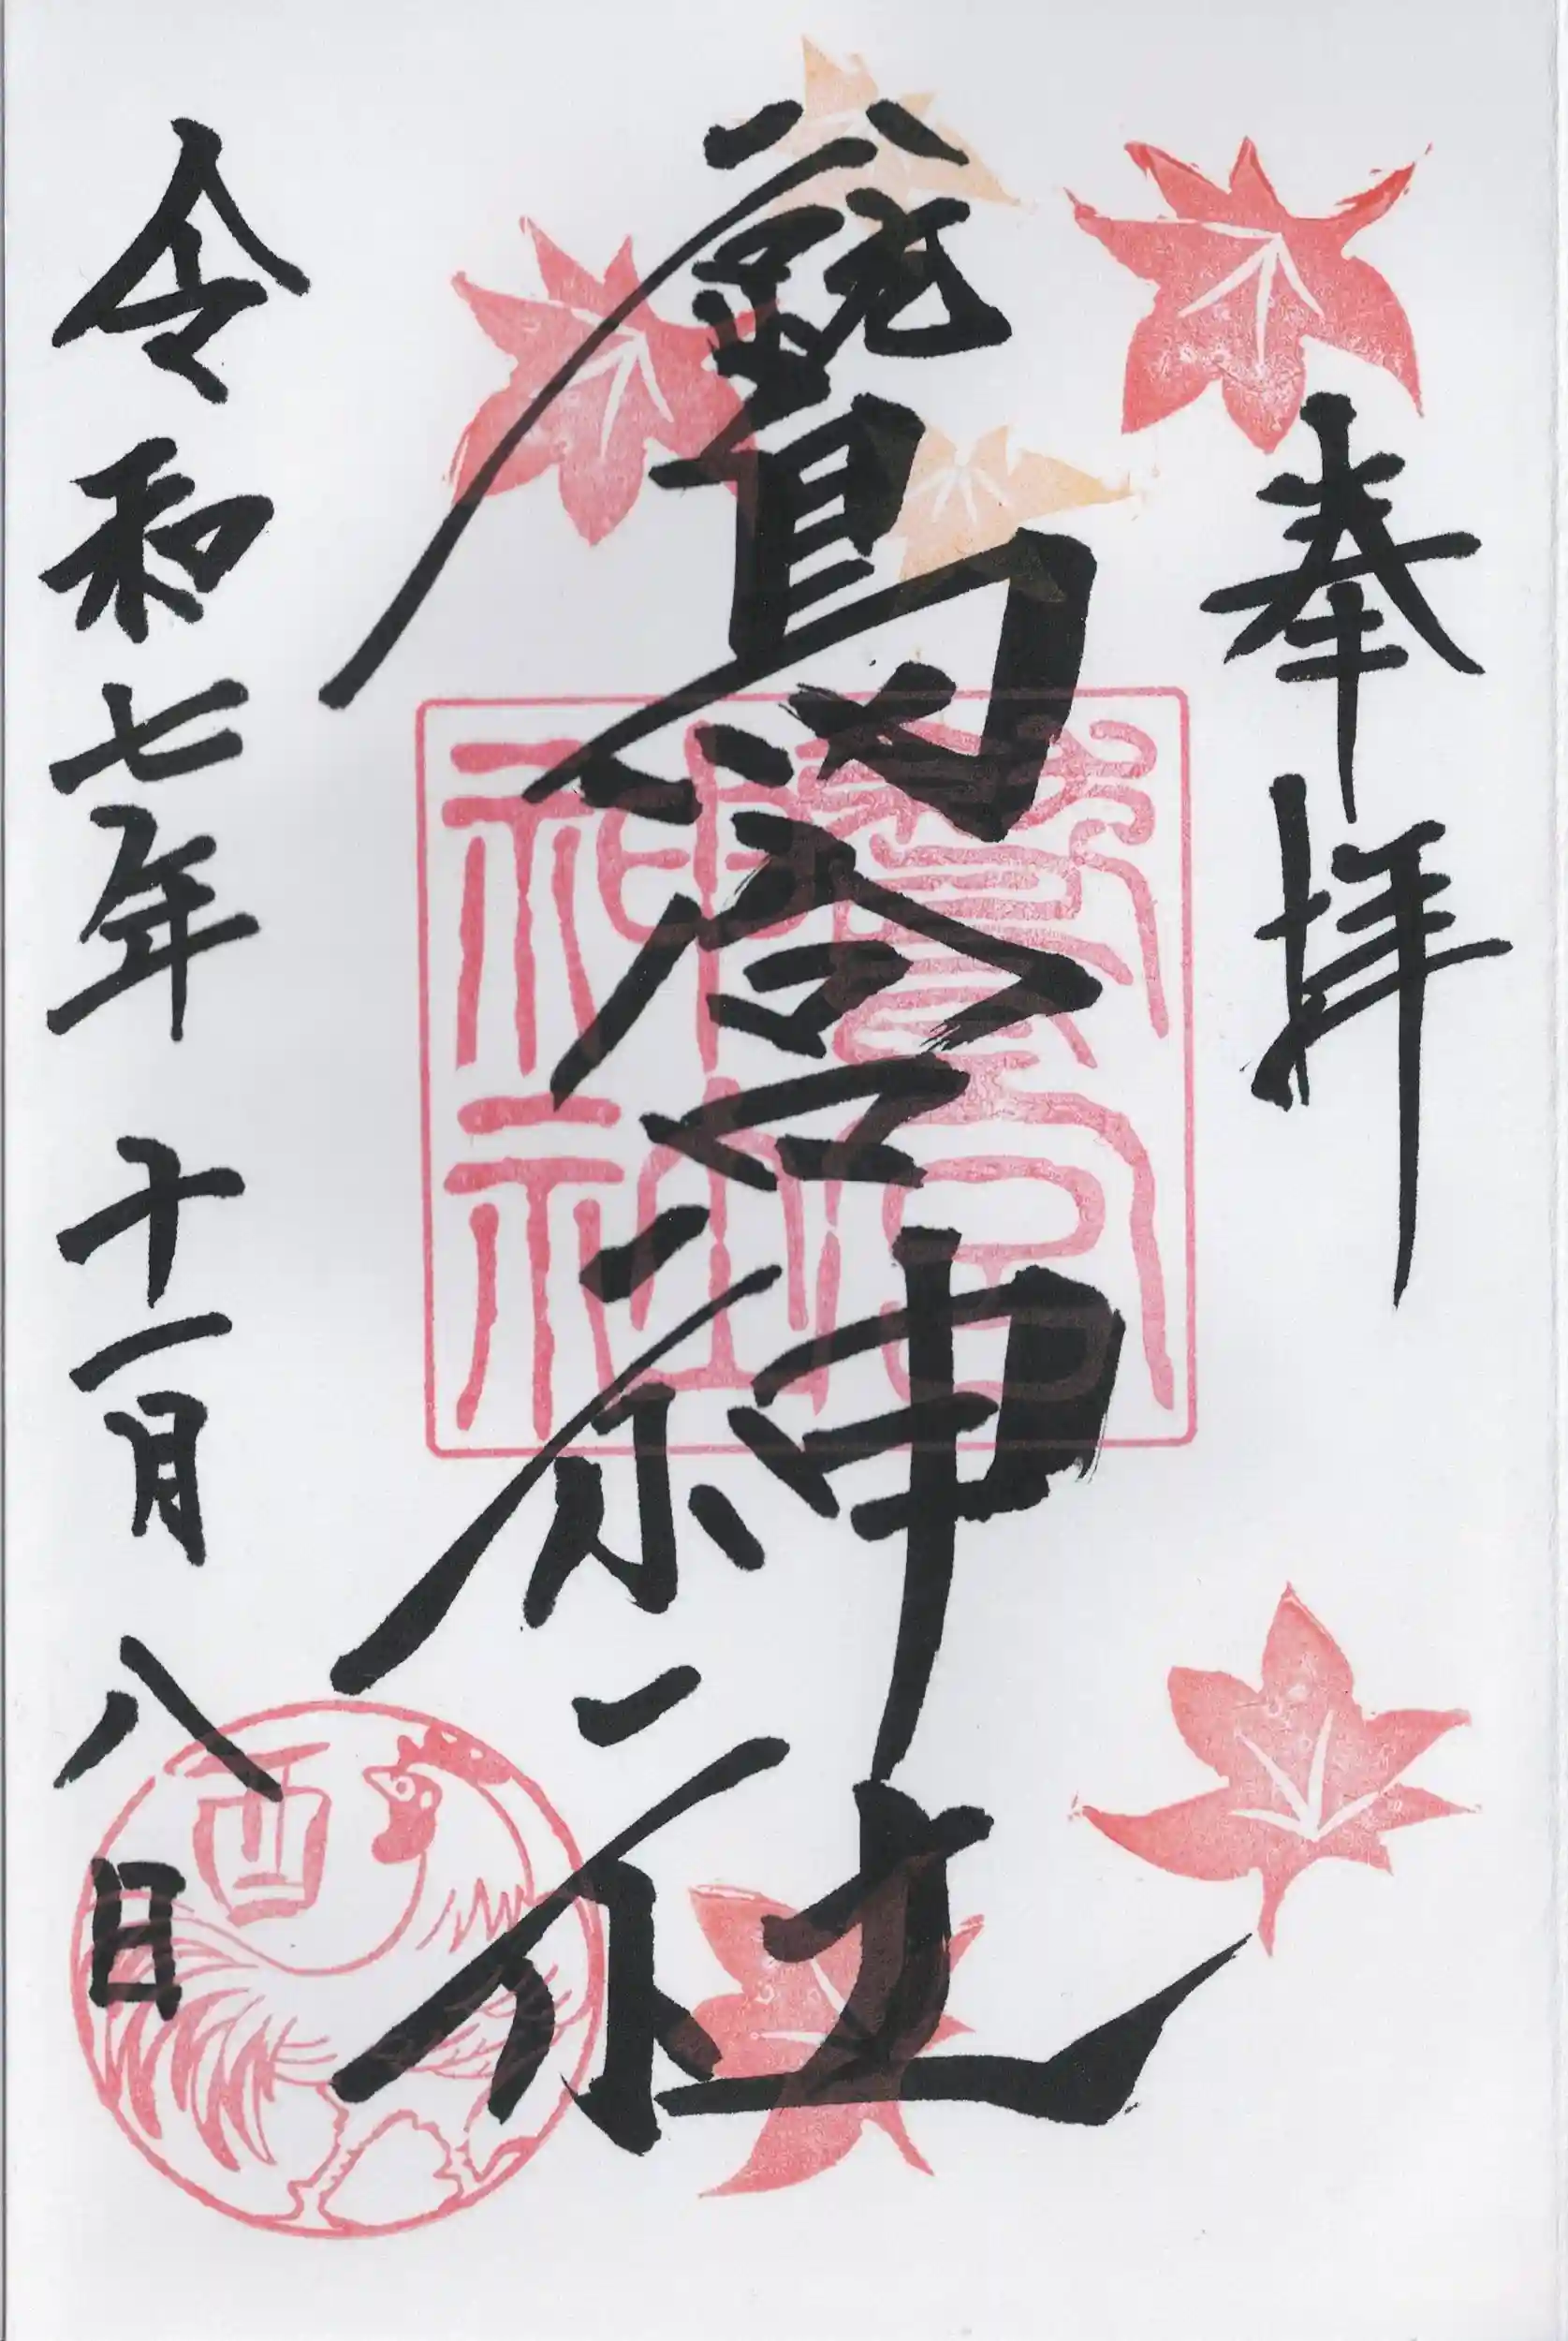 奉拝
鷲宮神社
鷲宮
神社
令和七年十一月八日
酉